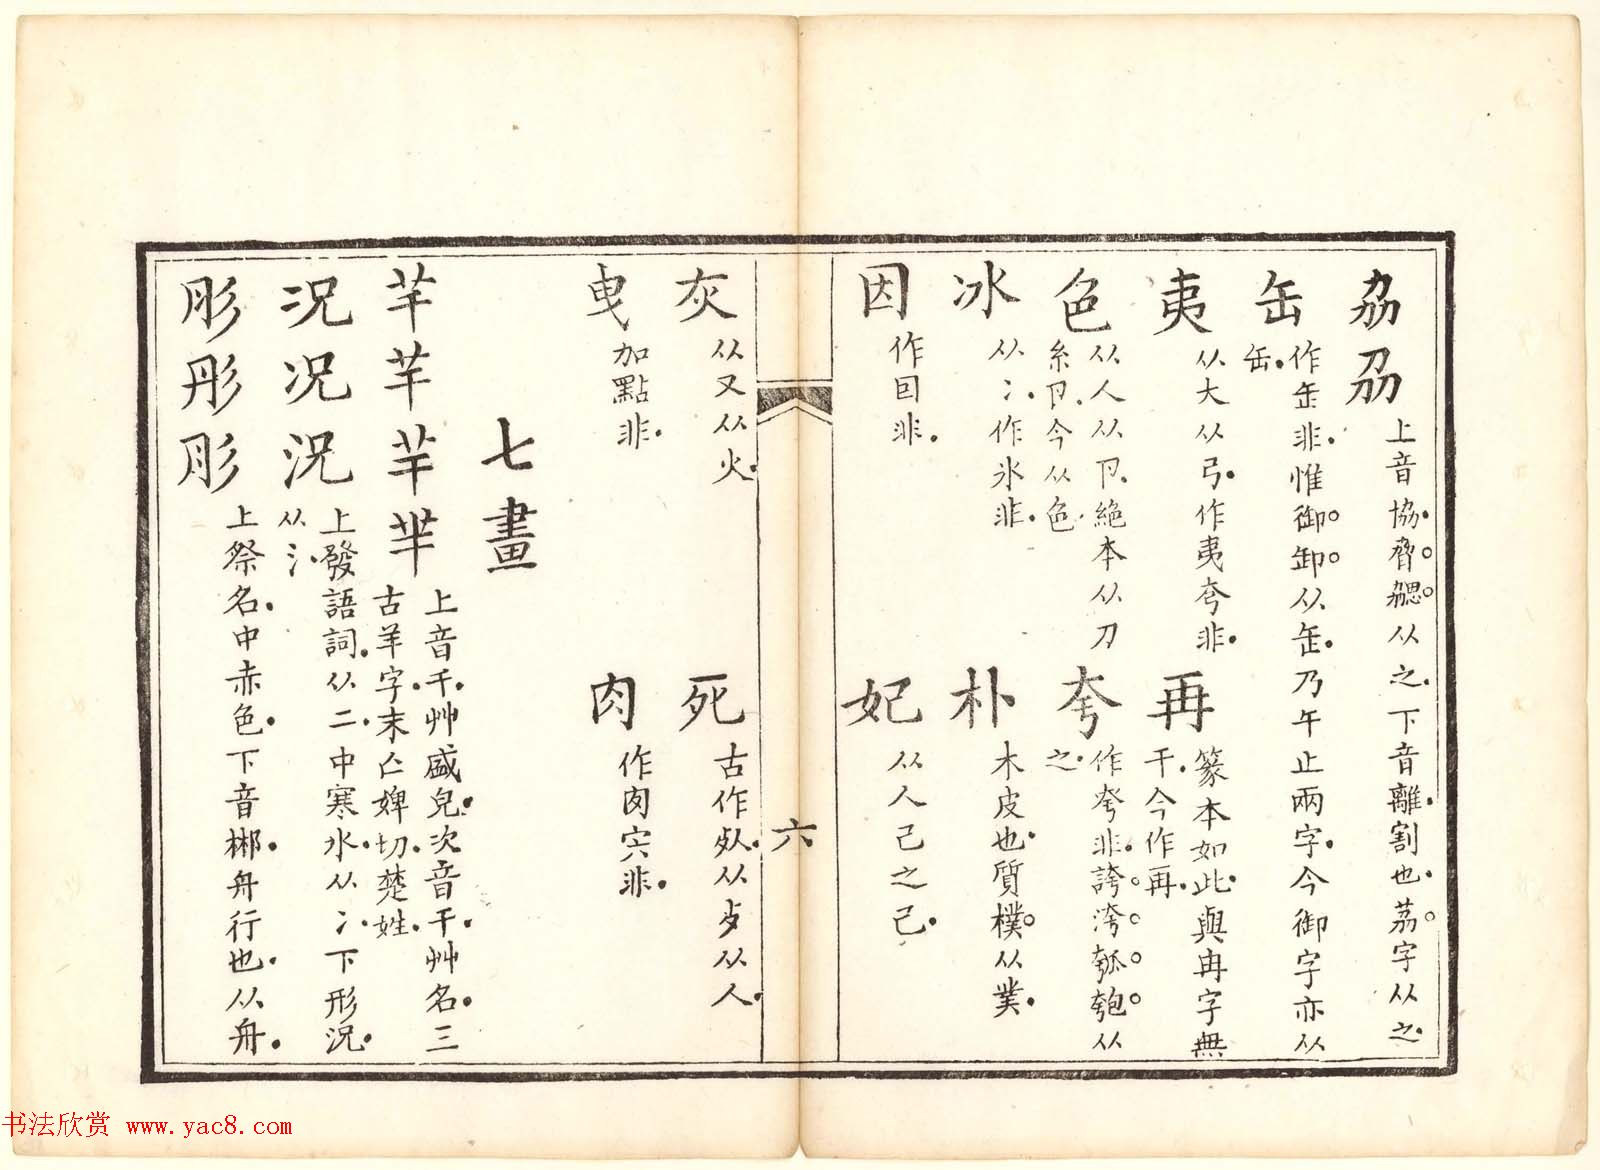 劦刕 上音協。脅。勰。从之。下音離。割也。荔字从之。
缶 作𦈢非。惟御。卸。从缶。乃午止兩字。今御字亦从缶。
夷 从大从弓。作夷夸非。
再 篆本如此。與冉字無干。今作再。
色 从人从卪。絶本从刀糸卪。今从色。
夸 作夸非。誇。洿。瓠。匏。从之。
冰 从冫。作氷非。
朴 木皮也。質樸。从菐。
因 作囙非。
妃 从人己之己。
六
灰 从又从火。
死 古作𣦸。从歺从人。
曳 加點非。
肉 作肉宍非。
七畫
芊芉芋羋 上音千。艸盛皃。次音干。艸名。三古羊字。末亡婢切。楚姓。
况况況 上發語詞。从二。中寒水。从冫。下形況。从氵。
肜彤彤 上祭名。中赤色。下音郴。舟行也。从舟。
书法欣赏 www.yac8.com